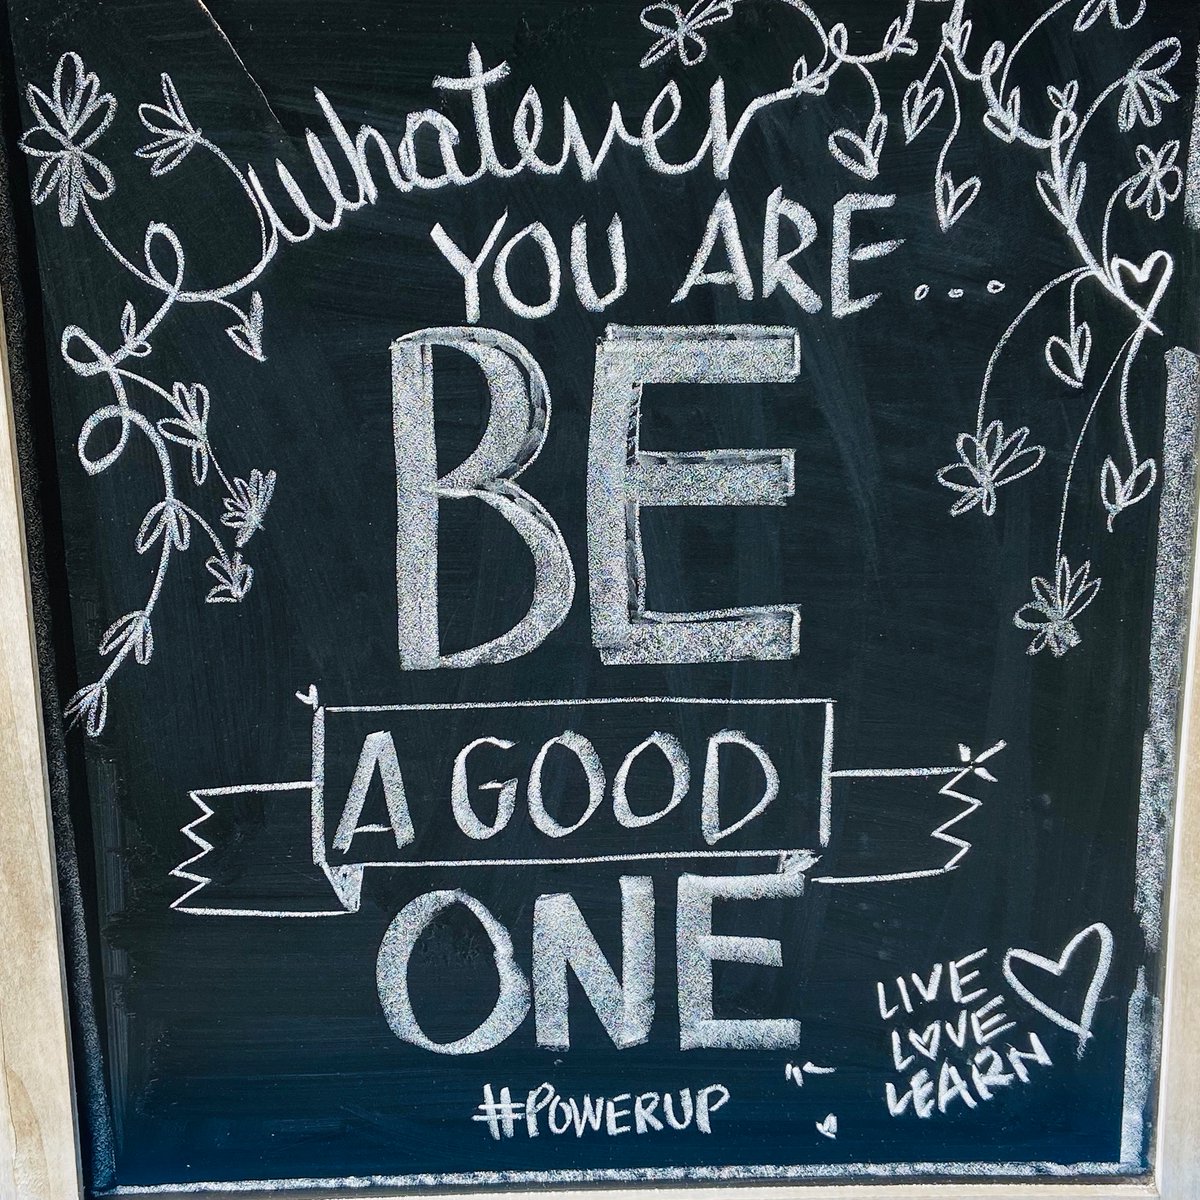 whatever
YOU ARE...
BE
A GOOD
ONE
#POWERUP
LIVE
LOVE
LEARN